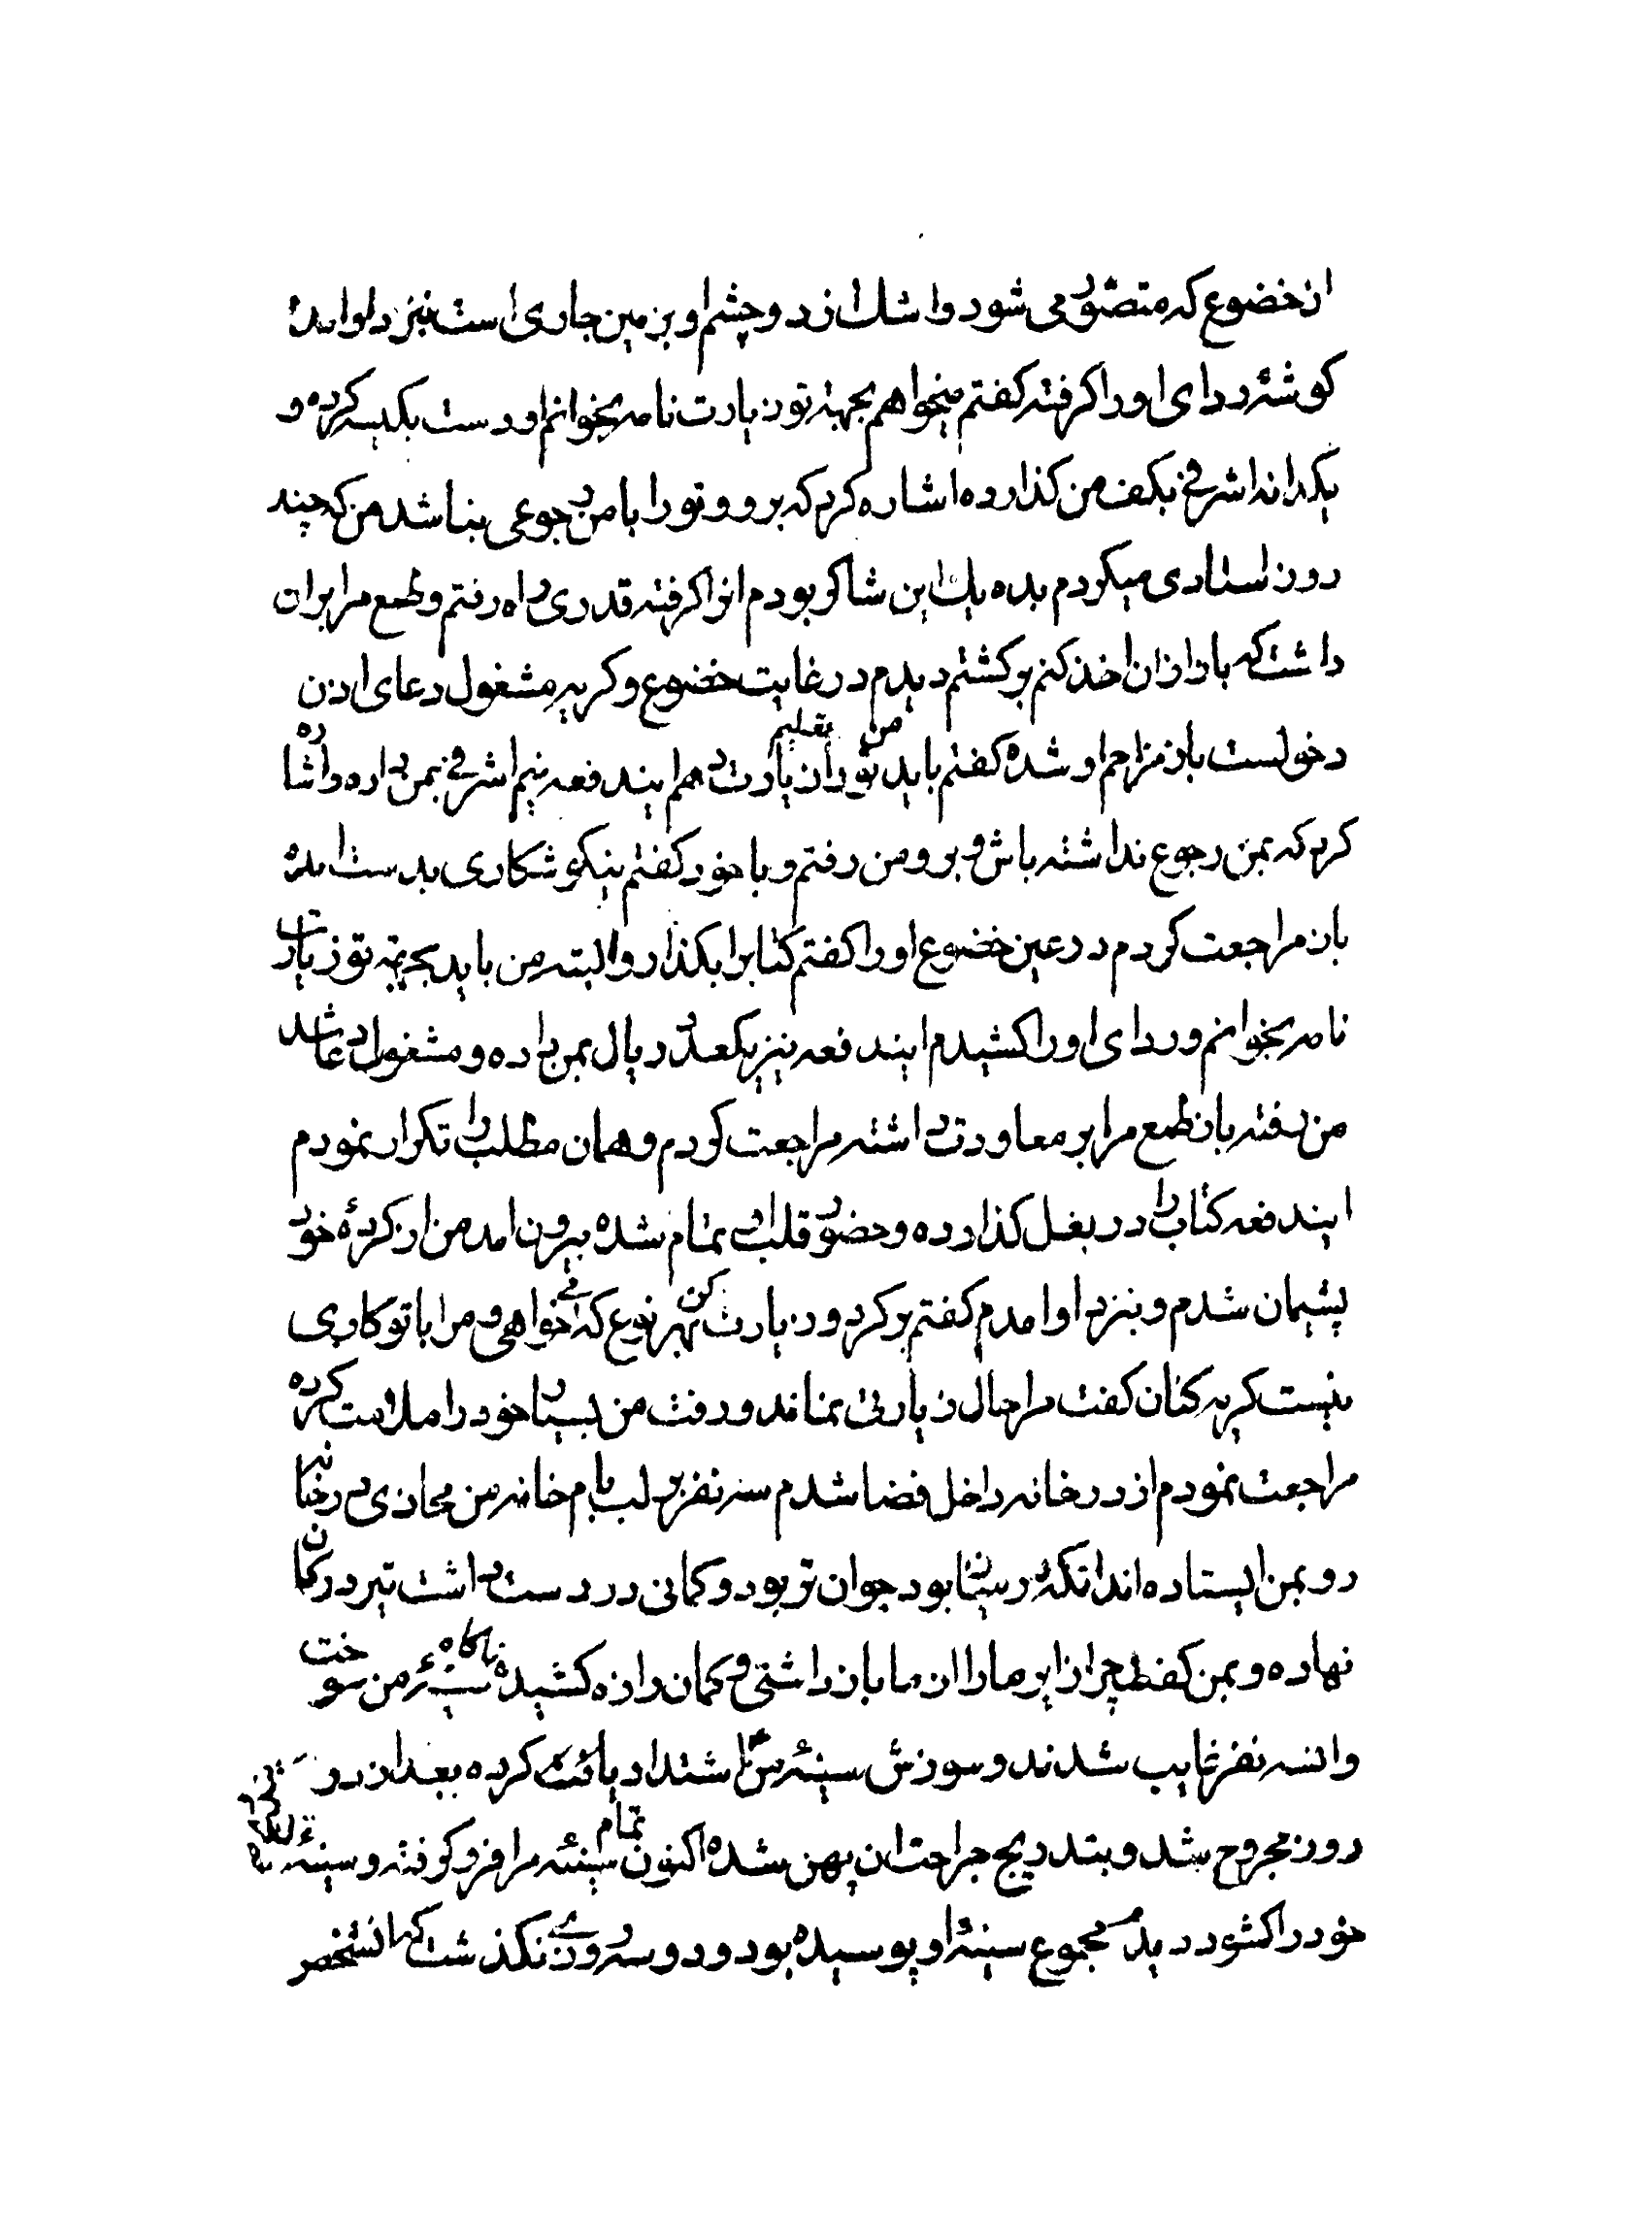 از خضوع که متصور می شود و اشك از دو چشم او بر زمین جاری است نیز د او امده
کوشهٔ ردای او را کرفته کفتم میخواهم بجهته تو زیارت نامه بخوانم او دست بکیسه کرده و
یکدانه اشرفی بکف من کذارده اشاره کرد که برو و تو را با من رجوعی نباشد من که چند
روز استادی میکردم بده یك این شاکر بودم انرا کرفته قدری راه رفتم و طمع مرا بران
داشت که باز از ان اخذ کنم برکشتم دیدم در غایت خضوع و کریه مشغول دعای اذن
دخولست باز مزاحم او شده کفتم باید من تو را زیارت تعلیم دهم ایندفعه نیم اشرفی بمن داده و اشاره
کرد که بمن رجوع نداشته باش و برو من رفتم و با خود کفتم نیکو شکاری بدست امده
باز مراجعت کردم در عین خضوع او را کفتم کتابرا بکذار و البته من باید بجهته تو زیارت
نامه بخوانم و ردای او را کشیدم ایندفعه نیز یکعدد ریال بمن داده و مشغول دعا شد
من رفته باز طمع مرا بر معاودت داشته مراجعت کردم و همان مطلب را تکرار نمودم
ایندفعه کتاب را در بغل کذارده و حضور قلب او تمام شده بیرون امد من از کردهٔ خود
پشیمان شدم و بنزد او امدم کفتم برکرد و زیارت کن بهر نوع که می خواهی و مرا با تو کاری
نیست کریه کنان کفت مرا حال زیارتی نماند و رفت من بسیار خود را ملامت کرده
مراجعت نمودم از در خانه داخل فضا شدم سه نفر بر لب بام خانه من محاذی در خانه
رو بمن ایستاده اند انکه در میان بود جوان تر بود و کمانی در دست داشت تیر در کمان
نهاده و بمن کفت چرا زایر ما را از ما باز داشتی و کمان را زه کشیده ناکاه سینهٔ من سوخت
و انسه نفر غایب شدند و سوزش سینهٔ من اشتداد یافت کرده بعد از دو
روز مجروح شد و بتدریج جراحت ان پهن شده اکنون تمام سینهٔ مرا فرو کرفته و سینهٔ
خود را کشود دیدم مجموع سینهٔ او پوسیده بود و دو سه روزی نکذشت که انشخص